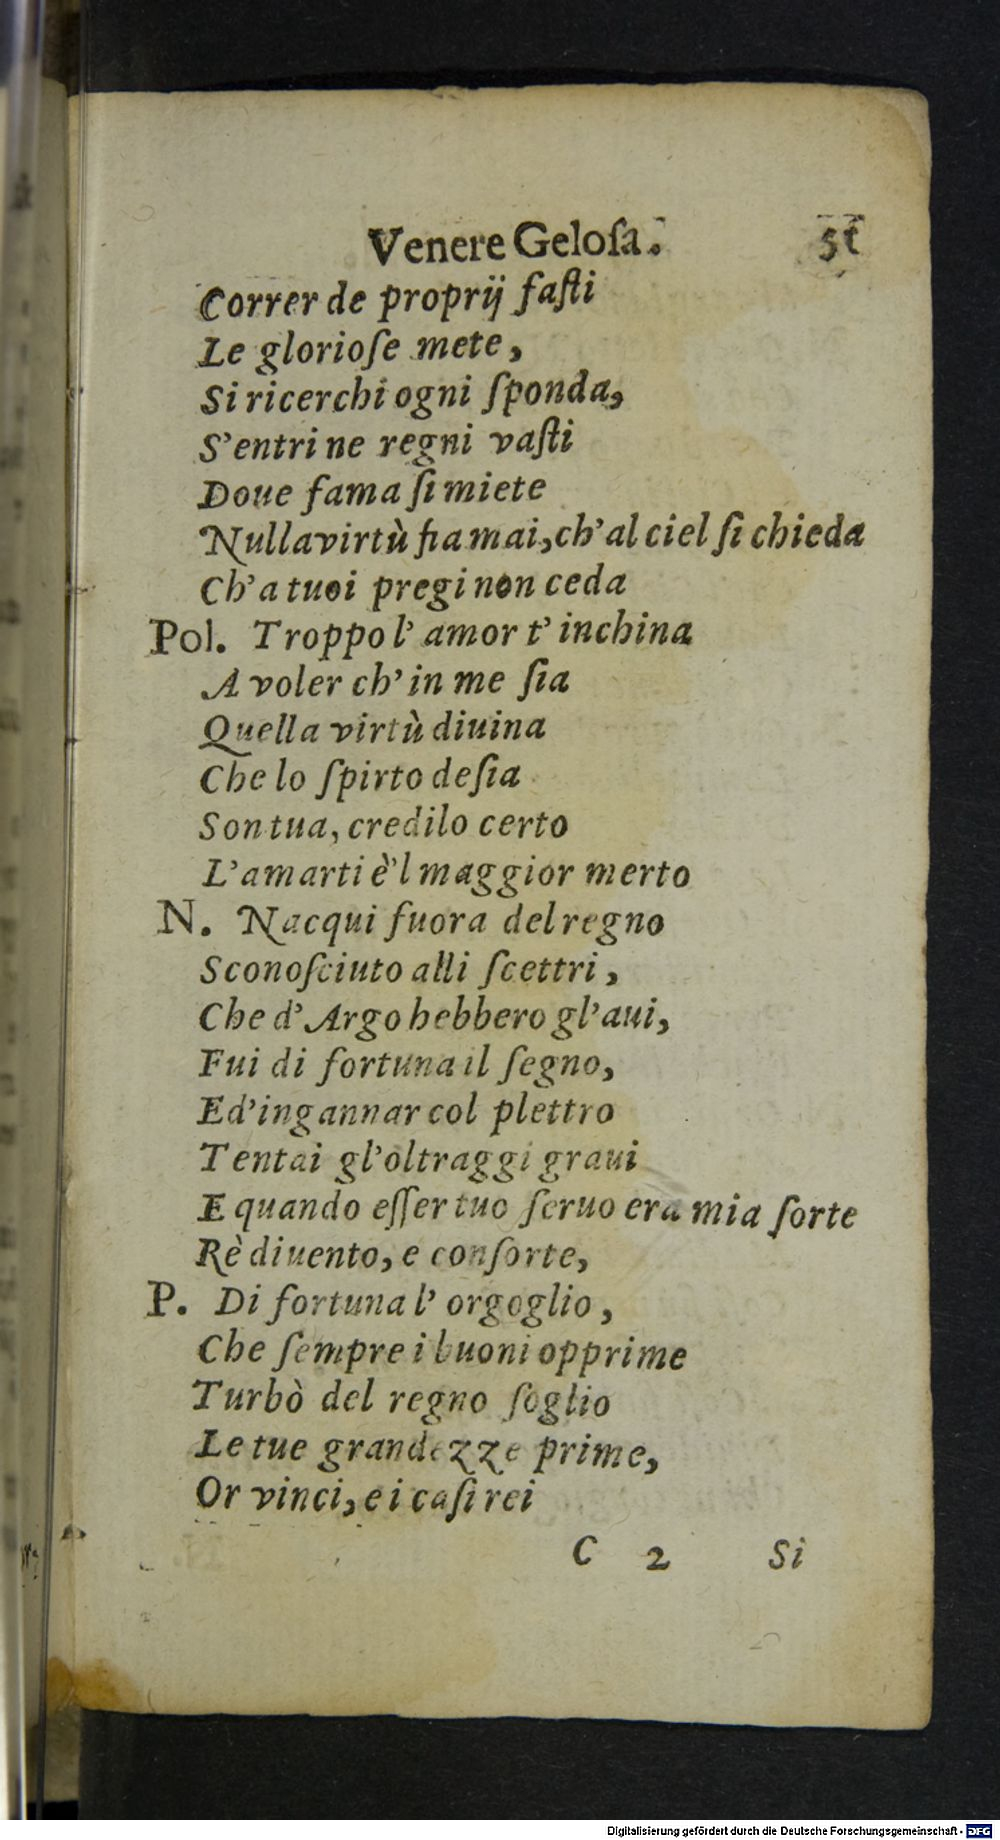 Venere Geloſa. 51
Correr de proprij faſti
Le glorioſe mete,
Si ricerchi ogni ſponda,
S'entri ne regni vaſti
Doue fama ſi miete
Nulla virtù fia mai, ch'al ciel ſi chieda
Ch'a tuoi pregi non ceda
Pol. Troppo l'amor t'inchina
A voler ch'in me ſia
Quella virtù diuina
Che lo ſpirto deſia
Son tua, credilo certo
L'amarti è'l maggior merto
N. Nacqui fuora del regno
Sconoſciuto alli ſcettri,
Che d'Argo hebbero gl'aui,
Fui di fortuna il ſegno,
Ed'ingannar col plettro
Tentai gl'oltraggi graui
E quando eſſer tuo ſeruo era mia ſorte
Rè diuento, e conſorte,
P. Di fortuna l'orgoglio,
Che ſempre i buoni opprime
Turbò del regno ſoglio
Le tue grandezze prime,
Or vinci, e i caſi rei
C 2 Si
Digitalisierung gefördert durch die Deutsche Forschungsgemeinschaft - DFG